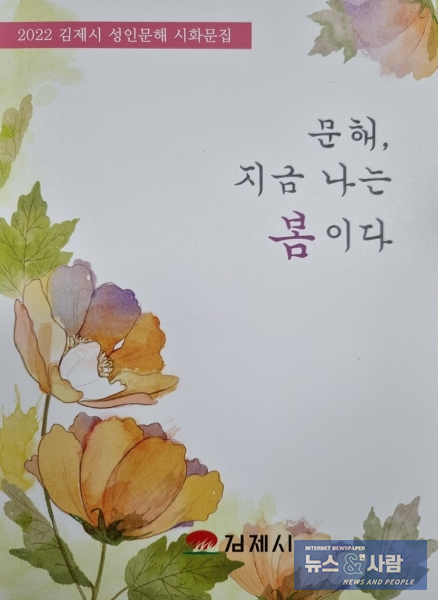 2022 김제시 성인문해 시화문집
문해,
지금 나는
봄이다
김제시
INTERNET NEWSPAPER
뉴스&앤사람
NEWS AND PEOPLE